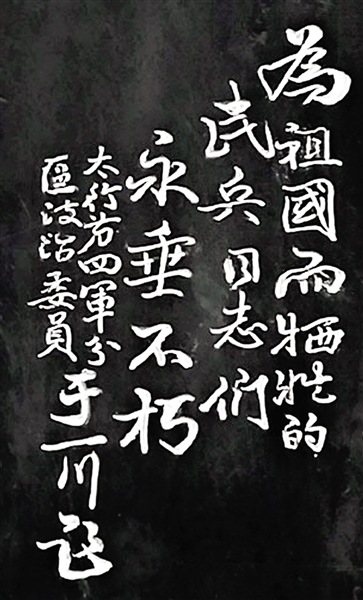 為祖國而牺牲的
民兵同志们
永垂不朽
太行第四軍分
區政治委員于一川题